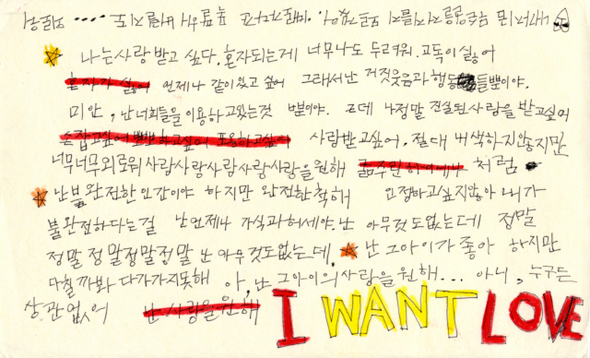 나는 사랑 받고 싶다. 혼자되는게 너무나도 두려워. 고독이 싫어
혼자가 싫어 언제나 같이 있고 싶어 그래서 난 거짓웃음과 행동들뿐이야.
미안, 난 너희들을 이용하고있는것 뿐이야. 근데 나 정말 진실된 사랑을 받고싶어
사랑받고싶어. 절대 내색하지않지만
너무너무외로워 사랑사랑사랑사랑사랑을원해 처럼
난 불완전한 인간이야 하지만 완전한척해 인정하고싶지않아 내가
불완전하다는걸 난 언제나 가식과허세야. 난 아무것도없는데 정말
정말 정말정말정말 난 아무것도없는데. 난 그아이가 좋아 하지만
다칠까봐 다가가지못해 아, 난 그아이의사랑을 원해... 아니, 누구든
상관없어 난 사랑을원해 I WANT LOVE